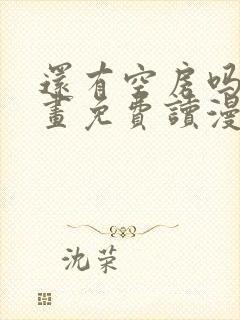 還有空房吗
畫免費讀漫
沈荣